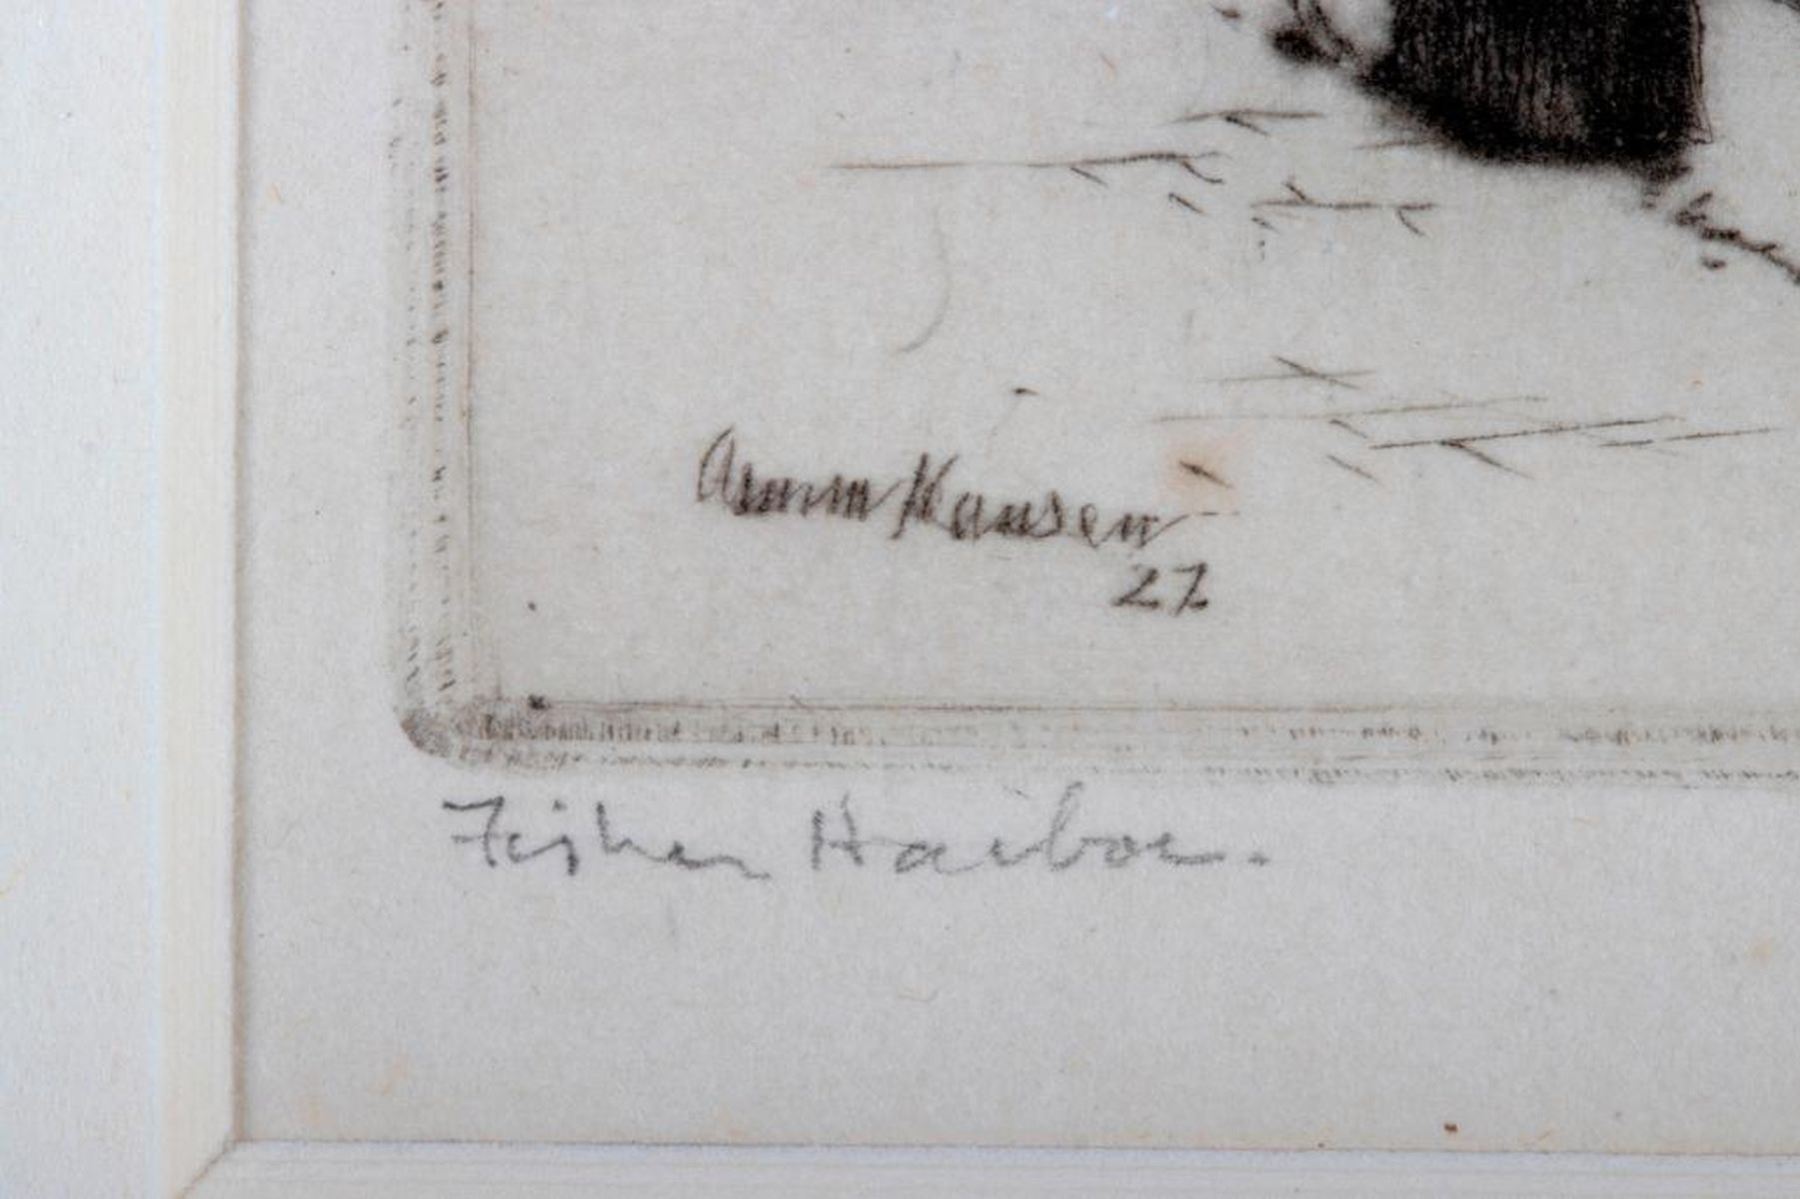 Armin Hansen
27
Fisher Harbor.